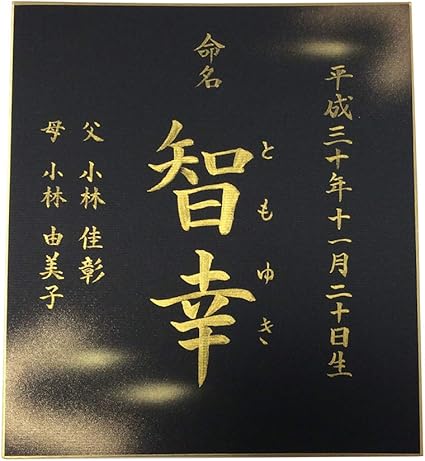 平成三十年十一月二十日生
命名
智幸
ともゆき
父 小林 佳彰
母 小林 由美子